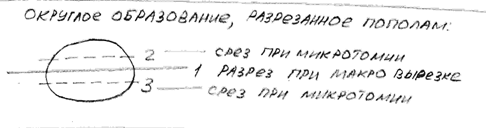 ОКРУГЛОЕ ОБРАЗОВАНИЕ, РАЗРЕЗАННОЕ ПОПОЛАМ:
2 — СРЕЗ ПРИ МИКРОТОМИИ
1 РАЗРЕЗ ПРИ МАКРО ВЫРЕЗКЕ
3 — СРЕЗ ПРИ МИКРОТОМИИ